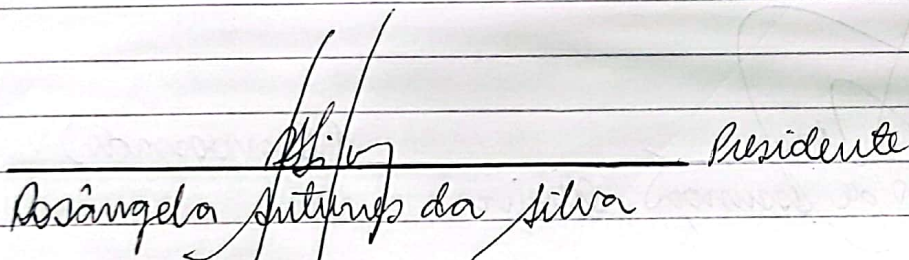 Presidente
Rosângela Antunes da Silva